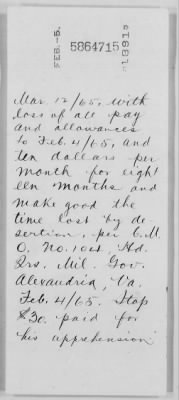 FEB.-5.
5864715
1891
Mar. 12/65. with
loss of all pay
and allowances
to Feb. 4/65, and
ten dollars per
month for eight
een months and
make good the
time lost by de-
sertion, per G.M.
O. No. Hd.
Qrs. Mil. Gov.
Alexandria, Va.
Feb. 4/65. Stop
$30 paid for
his apprehension